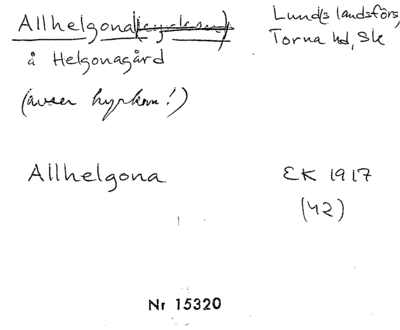 Allhelgona(kyrkan) Lunds landsförs,
å Helgonagård Torna hd, Sk
(avser kyrkan!)
Allhelgona EK 1917
(42)
Nr 15320